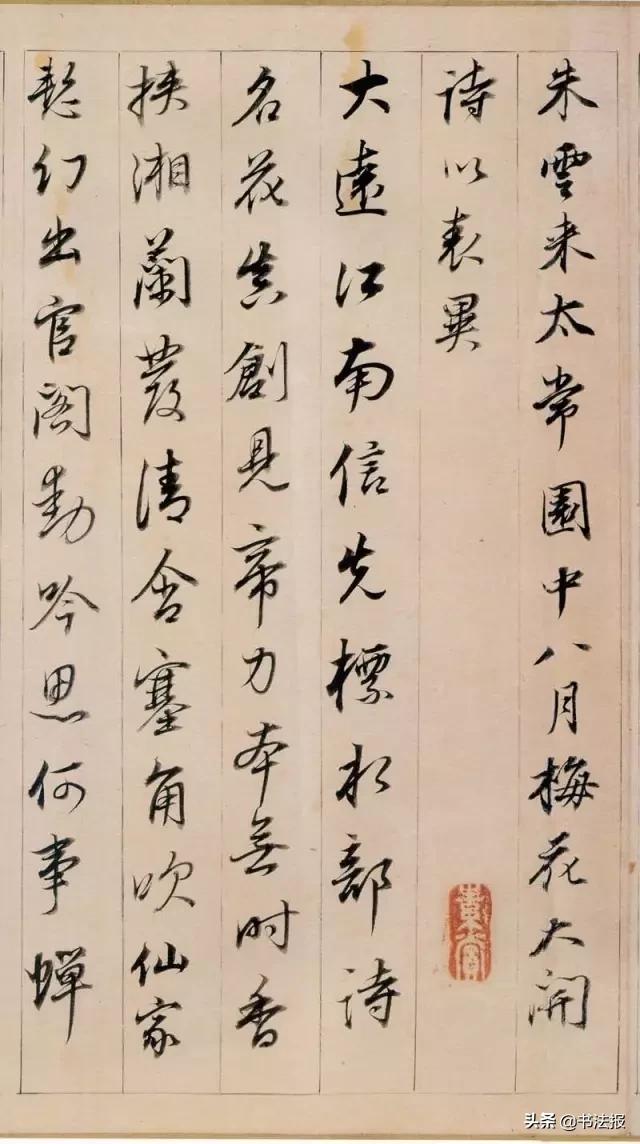 朱雲来太常園中八月梅花大開
詩以表異
大遠江南信先標水部詩
名花真創見帝力本無时香
挟湘蘭發清含塞角吹仙家
幻出官阁動吟思何事蝉
头条 @书法报